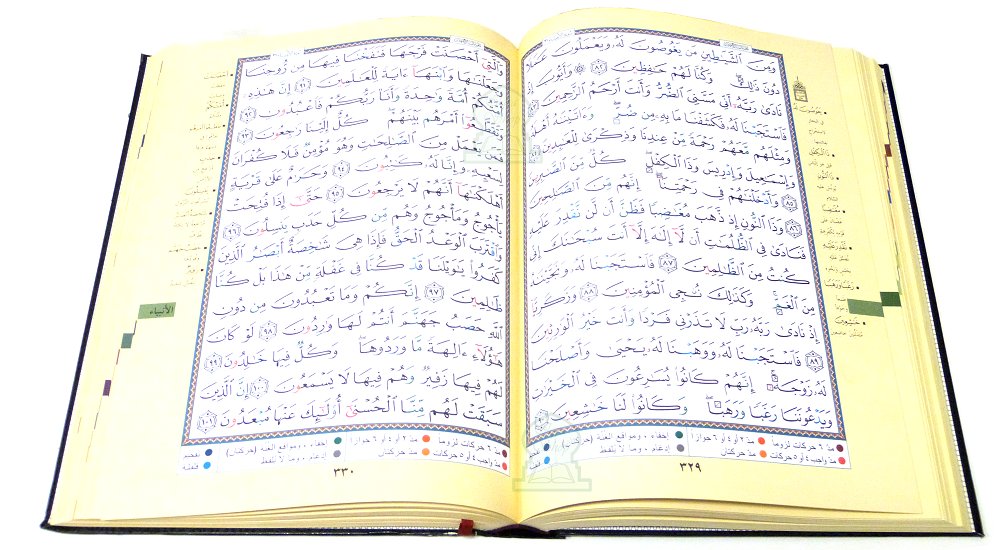 وَمِنَ ٱلشَّيَٰطِينِ مَن يَغُوصُونَ لَهُۥ وَيَعْمَلُونَ عَمَلًا
دُونَ ذَٰلِكَ ۖ وَكُنَّا لَهُمْ حَٰفِظِينَ ٨٢ ۞ وَأَيُّوبَ
نَادَىٰ رَبَّهُۥٓ أَنِّى مَسَّنِىَ ٱلضُّرُّ وَأَنتَ أَرْحَمُ ٱلرَّٰحِمِينَ
فَٱسْتَجَبْنَا لَهُۥ فَكَشَفْنَا مَا بِهِۦ مِن ضُرٍّ ۖ وَءَاتَيْنَٰهُ أَهْلَهُۥ
وَمِثْلَهُم مَّعَهُمْ رَحْمَةً مِّنْ عِندِنَا وَذِكْرَىٰ لِلْعَٰبِدِينَ
وَإِسْمَٰعِيلَ وَإِدْرِيسَ وَذَا ٱلْكِفْلِ ۖ كُلٌّ مِّنَ ٱلصَّٰبِرِينَ
٨٥ وَأَدْخَلْنَٰهُمْ فِى رَحْمَتِنَآ ۖ إِنَّهُم مِّنَ ٱلصَّٰلِحِينَ
٨٦ وَذَا ٱلنُّونِ إِذ ذَّهَبَ مُغَٰضِبًا فَظَنَّ أَن لَّن نَّقْدِرَ عَلَيْهِ
فَنَادَىٰ فِى ٱلظُّلُمَٰتِ أَن لَّآ إِلَٰهَ إِلَّآ أَنتَ سُبْحَٰنَكَ إِنِّى
كُنتُ مِنَ ٱلظَّٰلِمِينَ ٨٧ فَٱسْتَجَبْنَا لَهُۥ وَنَجَّيْنَٰهُ
مِنَ ٱلْغَمِّ ۚ وَكَذَٰلِكَ نُۨجِى ٱلْمُؤْمِنِينَ ٨٨ وَزَكَرِيَّآ
إِذْ نَادَىٰ رَبَّهُۥ رَبِّ لَا تَذَرْنِى فَرْدًا وَأَنتَ خَيْرُ ٱلْوَٰرِثِينَ
٨٩ فَٱسْتَجَبْنَا لَهُۥ وَوَهَبْنَا لَهُۥ يَحْيَىٰ وَأَصْلَحْنَا
لَهُۥ زَوْجَهُۥٓ ۚ إِنَّهُمْ كَانُوا۟ يُسَٰرِعُونَ فِى ٱلْخَيْرَٰتِ
وَيَدْعُونَنَا رَغَبًا وَرَهَبًا ۖ وَكَانُوا۟ لَنَا خَٰشِعِينَ ٩٠
مدّ ٦ حركات لزوماً مدّ ٢ أو ٤ أو ٦ جوازاً إخفاء، ومواقع الغنة (حركتان) تفخيم
مدّ واجب ٤ أو ٥ حركات مدّ حركتان إدغام، وما لا يلفظ قلقلة
٣٢٩
وَٱلَّتِىٓ أَحْصَنَتْ فَرْجَهَا فَنَفَخْنَا فِيهَا مِن رُّوحِنَا
وَجَعَلْنَٰهَا وَٱبْنَهَآ ءَايَةً لِّلْعَٰلَمِينَ ٩١ إِنَّ هَٰذِهِۦٓ
أُمَّتُكُمْ أُمَّةً وَٰحِدَةً وَأَنَا۠ رَبُّكُمْ فَٱعْبُدُونِ ٩٢
وَتَقَطَّعُوٓا۟ أَمْرَهُم بَيْنَهُمْ ۖ كُلٌّ إِلَيْنَا رَٰجِعُونَ ٩٣
فَمَن يَعْمَلْ مِنَ ٱلصَّٰلِحَٰتِ وَهُوَ مُؤْمِنٌ فَلَا كُفْرَانَ
لِسَعْيِهِۦ وَإِنَّا لَهُۥ كَٰتِبُونَ ٩٤ وَحَرَٰمٌ عَلَىٰ قَرْيَةٍ
أَهْلَكْنَٰهَآ أَنَّهُمْ لَا يَرْجِعُونَ ٩٥ حَتَّىٰٓ إِذَا فُتِحَتْ
يَأْجُوجُ وَمَأْجُوجُ وَهُم مِّن كُلِّ حَدَبٍ يَنسِلُونَ ٩٦
وَٱقْتَرَبَ ٱلْوَعْدُ ٱلْحَقُّ فَإِذَا هِىَ شَٰخِصَةٌ أَبْصَٰرُ ٱلَّذِينَ
كَفَرُوا۟ يَٰوَيْلَنَا قَدْ كُنَّا فِى غَفْلَةٍ مِّنْ هَٰذَا بَلْ كُنَّا
ظَٰلِمِينَ ٩٧ إِنَّكُمْ وَمَا تَعْبُدُونَ مِن دُونِ
ٱللَّهِ حَصَبُ جَهَنَّمَ أَنتُمْ لَهَا وَٰرِدُونَ ٩٨ لَوْ كَانَ
هَٰٓؤُلَآءِ ءَالِهَةً مَّا وَرَدُوهَا ۖ وَكُلٌّ فِيهَا خَٰلِدُونَ ٩٩
لَهُمْ فِيهَا زَفِيرٌ وَهُمْ فِيهَا لَا يَسْمَعُونَ ١٠٠ إِنَّ ٱلَّذِينَ
سَبَقَتْ لَهُم مِّنَّا ٱلْحُسْنَىٰٓ أُو۟لَٰٓئِكَ عَنْهَا مُبْعَدُونَ ١٠١
الأنبياء
مدّ ٦ حركات لزوماً مدّ ٢ أو ٤ أو ٦ جوازاً إخفاء، ومواقع الغنة (حركتان) تفخيم
مدّ واجب ٤ أو ٥ حركات مدّ حركتان إدغام، وما لا يلفظ قلقلة
٣٣٠